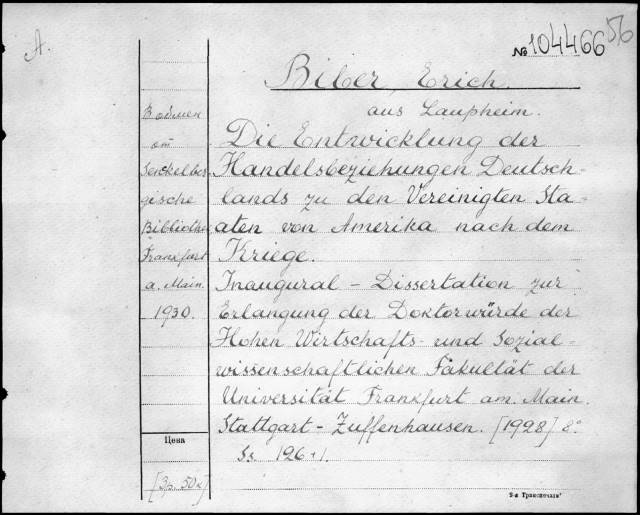 A.
№ 104466 56
Biber, Erich.
aus Laupheim.
Die Entwicklung der
Handelsbeziehungen Deutsch-
lands zu den Vereinigten Sta-
aten von Amerika nach dem
Kriege.
Inaugural - Dissertation zur
Erlangung der Doktorwürde der
Hohen Wirtschafts- und Sozial-
wissenschaftlichen Fakultät der
Universität Frankfurt am. Main.
Stattgart - Zuffenhausen. [1928] 8°
Ss. 126+1.
Вобмен
от
Senckelber-
gische
Bibliothek
Frankfurt
a. Main.
1930.
Цена
[3р. 50к]